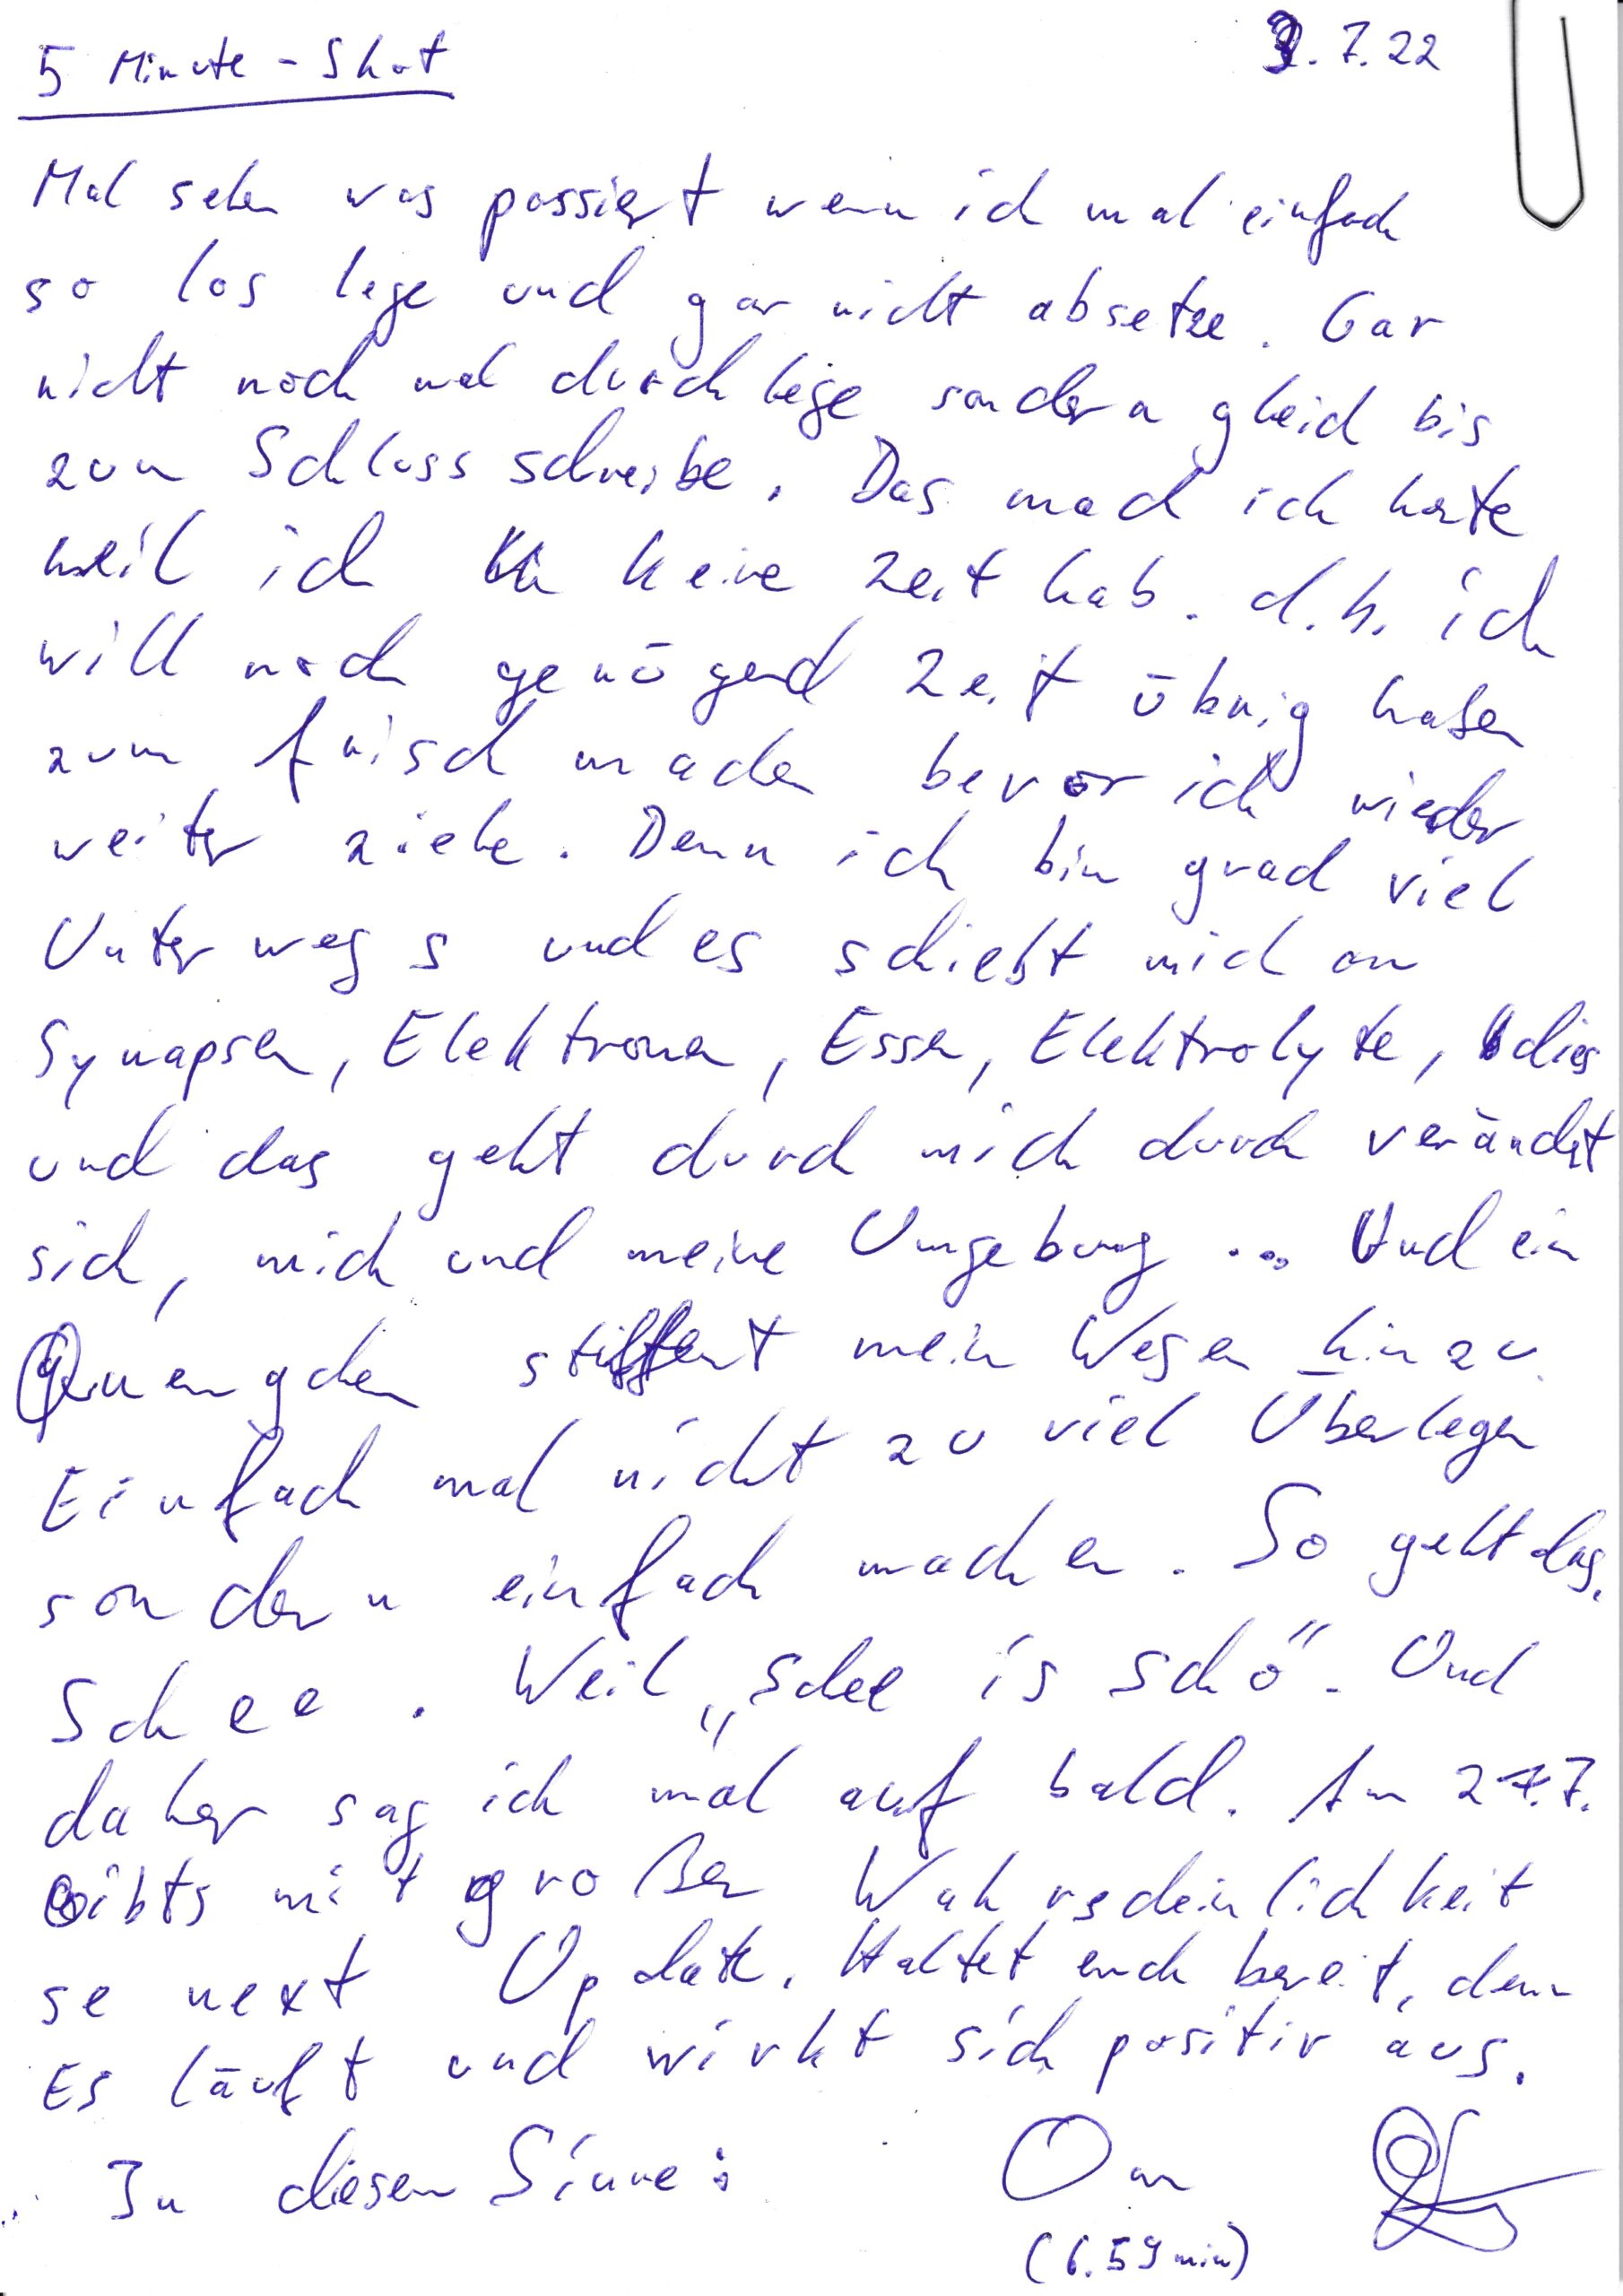 5 Minute - Shot
3.7.22
Mal sehen was passiert wenn ich mal einfach
so los lege und gar nicht absetze. Gar
nicht noch mal durchlese sondern gleich bis
zum Schluss schreibe. Das mach ich heute
weil ich keine Zeit hab. d.h. ich
will noch genügend Zeit übrig haben
zum frisch machen bevor ich wieder
weiter ziehe. Denn ich bin grad viel
Unterwegs und es schiebt mich an
Synapsen, Elektronen, Essen, Elektrolyte, dies
und das geht durch mich durch verändert
sich, mich und meine Umgebung ... Und ein
Quengchen mein Wesen hinzu.
Einfach mal nicht zu viel Überlegen
sondern einfach machen. So geht das.
Schee. Weil „schee is schö". Und
daher sag ich mal auf bald. Am 27.7.
Gibts mit großer Wahrscheinlichkeit
se next Update. Haltet euch bereit, denn
Es läuft und wirkt sich positiv aus.
In diesem Sinne:
Om
(6.59 min)